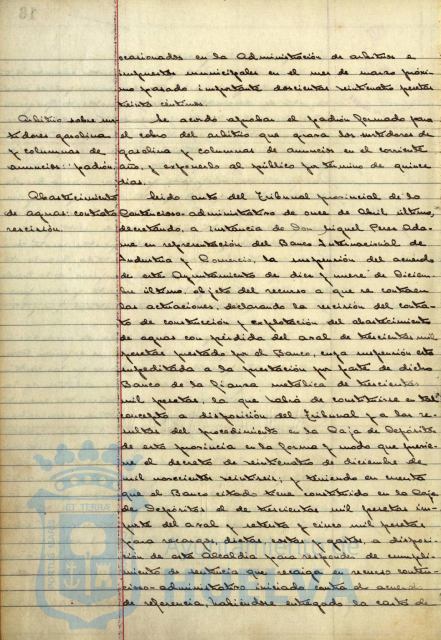 ocasionados en la Administración de arbitrios e
impuestos municipales en el mes de marzo próxi-
mo pasado importante doscientas veintiocho pesetas
treinta céntimos.
Arbitrio sobre sur-
tidores gasolina
y columnas de
anuncios: padrón.
Se acordó aprobar el padrón formado para
el cobro del arbitrio que grava los surtidores de
gasolina y columnas de anuncios en el corriente
año, y exponerlo al público por término de quince
días.
Abastecimiento
de aguas: contrato
rescisión.
Leído auto del Tribunal provincial de lo
Contencioso-administrativo de once de Abril último,
decretando, a instancia de Don Miguel Peres Ada-
me en representación del Banco Internacional de
Industria y Comercio, la suspensión del acuerdo
de este Ayuntamiento de diez y nueve de Diciem-
bre último, objeto del recurso a que se contraen
las actuaciones, declarando la rescisión del contra-
to de construcción y explotación del abastecimiento
de aguas con pérdida del aval de trescientas mil
pesetas prestado por el Banco, cuya suspensión está
supeditada a la prestación por parte de dicho
Banco de la fianza metálica de trescientas
mil pesetas, la que habrá de constituirse en tal
concepto a disposición del Tribunal y a las re-
sultas del procedimiento en la Caja de Depósitos
de esta provincia en la forma y modo que previe-
ne el decreto de veinticuatro de diciembre de
mil novecientos veintiseis, y teniendo en cuenta
que el Banco citado tiene constituido en la Caja
de Depósitos el de trescientas mil pesetas im-
porte del aval y setenta y cinco mil pesetas
para recargos, dietas, costas y gastos, a disposi-
ción de esta Alcaldía para responder de cumpli-
miento de sentencia que recaiga en recurso conten-
cioso-administrativo iniciado contra el acuerdo
de referencia, habiendose entregado la carta de